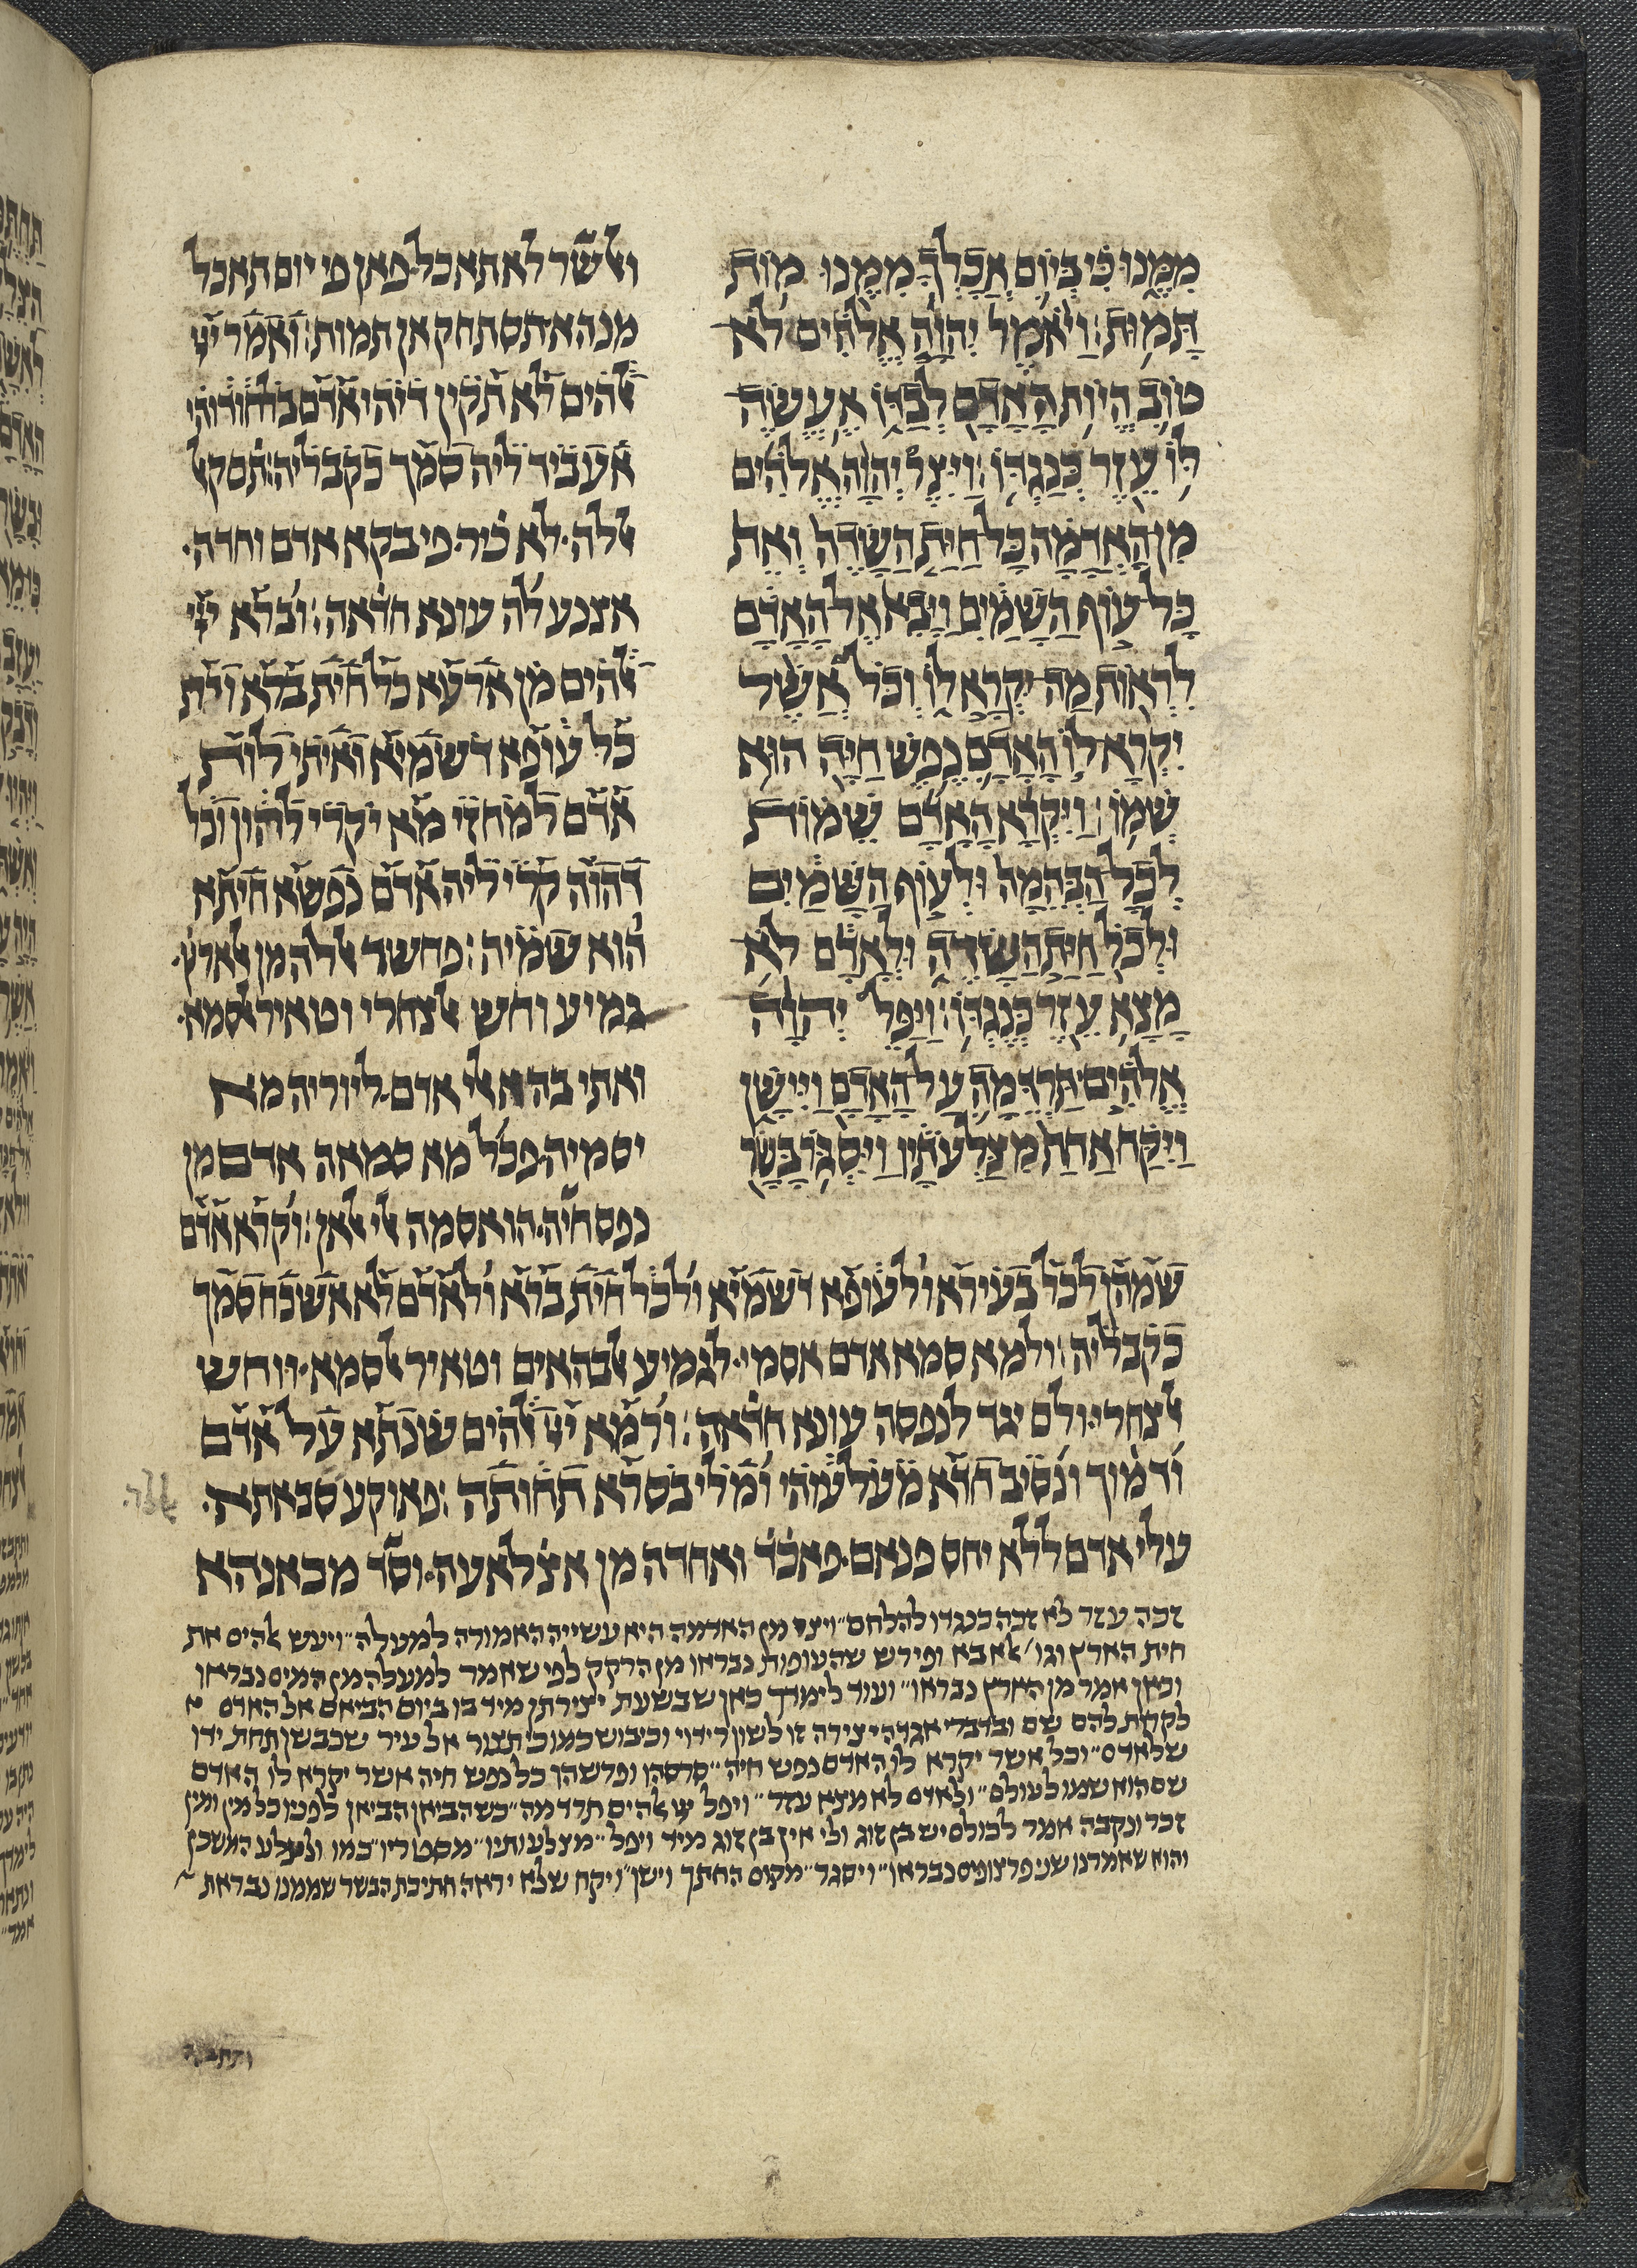 ממנו כי ביום אכלך ממנו מות
תמות: ויאמר יהוה אלהים לא
טוב היות האדם לבדו אעשה
לו עזר כנגדו: ויצר יהוה אלהים
מן האדמה כל חית השדה ואת
כל עוף השמים ויבא אל האדם
לראות מה יקרא לו וכל אשר
יקרא לו האדם נפש חיה הוא
שמו: ויקרא האדם שמות
לכל הבהמה ולעוף השמים
ולכל חית השדה ולאדם לא
מצא עזר כנגדו: ויפל יהוה
אלהים תרדמה על האדם ויישן
ויקח אחת מצלעתיו ויסגר בשר
ואלשר לא תאכל פאן פי יום תאכל
מנהא תסתחק אן תמות: ואמר ייי
אלהים לא תקין דיהי אדם בלחודוהי
אעביד ליה סמך כקבליה: תם קאל
אללה לא כיר פי בקא אדם וחדה
אצנע לה עונא חדאה: וברא ייי
אלהים מן ארעא כל חית ברא וית
כל עופא דשמיא ואיתי לות
אדם למחזי מא יקרי להון וכל
דהוה קרי ליה אדם נפשא חיתא
הוא שמיה: פחשר אללה מן אלארץ
גמיע וחש אלצחרי וטאיר אלסמא
ואתי בהא אלי אדם ליוריה מא
יסמיה פכל מא סמאה אדם מן
נפס חיה הו אסמה אלי אלאן: וקרא אדם
שמהן לכל בעירא ולעופא דשמיא ולכל חית ברא ולאדם לא אשכח סמך
כקבליה: ולמא סמא אדם אסמי לגמיע אלבהאים וטאיר אלסמא ווחש
אלצחרי ולם יגד לנפסה עונא חדאה: ורמא ייי אלהים שנתא על אדם
ודמוך ונסיב חדא מעלעוהי ומלי בסרא תחותה: פאוקע סבאתא
עלי אדם ללא יחס פנאם פאכד ואחדה מן אצלאעה וסד מכאנהא
זכה עזר לא זכה כנגדו להלחם ויצר מן האדמה היא עשייה האמורה למעלה ויעש אלהים את
חית הארץ וגו׳ אלא בא ופירש שהעופות נבראו מן הרקק לפי שאמר למעלה מן המים נבראו
וכאן אמר מן הארץ נבראו ועוד לימדך כאן שבשעת יצירתן מיד בו ביום הביאם אל האדם
לקרות להם שם ובדברי אגדה יצירה זו לשון רידוי וכיבוש כמו כי תצור אל עיר שכבשן תחת ידו
שלאדם וכל אשר יקרא לו האדם נפש חיה סרסהו ופרשהו כל נפש חיה אשר יקרא לו האדם
שם הוא שמו לעולם ולאדם לא מצא עזר ויפל ייי אלהים תרדמה כשהביאן הביאן לפניו כל מין ומין
זכר ונקבה אמר לכולם יש בן זוג ולי אין בן זוג מיד ויפל מצלעותיו מסטריו כמו ולצלע המשכן
והוא שאמרנו שני פרצופים נבראו ויסגר מקום החתך ויישן ויקח שלא יראה חתיכת הבשר שממנו נבראת